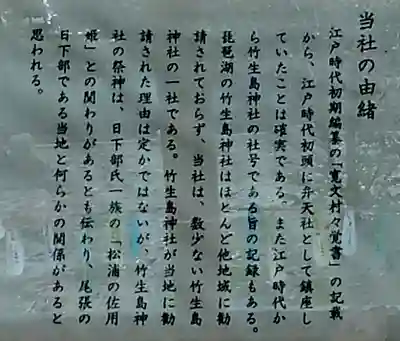 当社の由緒
江戸時代初期編纂の「寛文村々覚書」の記載
から、江戸時代初頭に弁天社として鎮座し
ていたことは確実である。また江戸時代か
ら竹生島神社の社号である旨の記録もある。
琵琶湖の竹生島神社はほとんど他地域に勧
請されておらず、当社は、数少ない竹生島
神社の一社である。竹生島神社が当地に勧
請された理由は定かではないが、竹生島神
社の祭神は、日下部氏一族の「松浦の佐用
姫」との関わりがあるとも伝わり、尾張の
日下部である当地と何らかの関係があると
思われる。